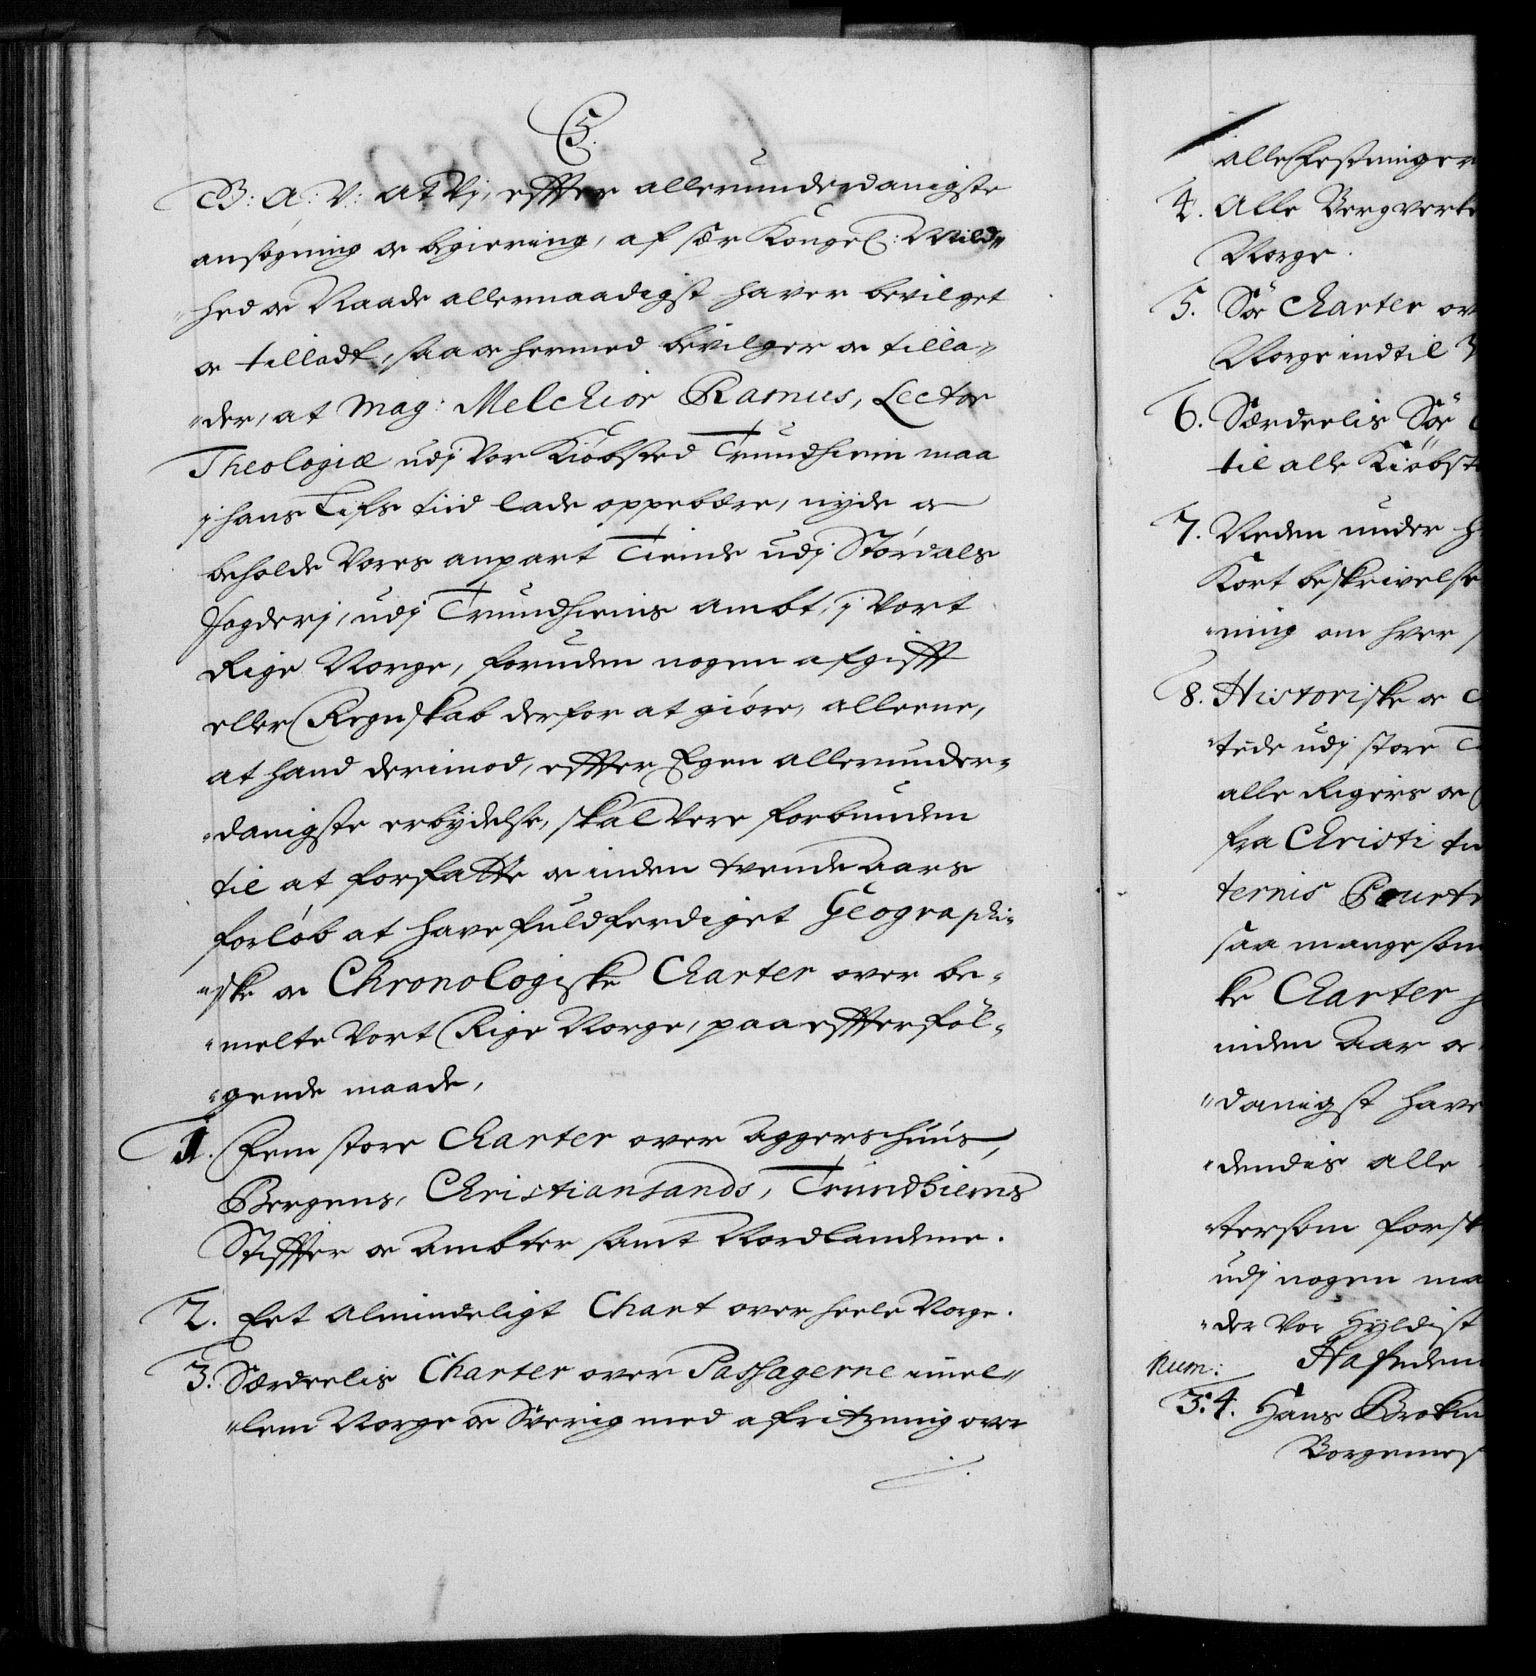 C5.
B: A: V: at Vj, effter allerunderdanigste
ansøgning oc begiering, af sær Kongel: Mild„
„hed oc Naade allernaadigst hafver bevilget
oc tilladt, saa oc hermed bevilger oc tilla„
„der, at Mag: Melchior Ramus, Lector
Theologiæ udj Vor Kiøbsted Trundhiem maa
j hans Lifs tiid lade oppebære, nyde oc
beholde Vores anpart Tiende udj Størdals
Fogderj, udj Trundhiems Ambt, j Vort
Rige Norge, foruden nogen afgifft
eller Regnskab derfor at giøre, alleene,
at hand derimod, effter Egen allerunder„
„danigste erbydelse, skal Vere forbunden
til at forfatte oc inden tvende Aars
forløb at hafve fuldferdiget Geographi„
„ske oc Chronologiske Charter over be„
„melte Vort Rige Norge, paa effterföl„
„gende maade,
1. Fem store Charter over Aggershuus,
Bergens, Christiansands, Trundhiems
Stiffter oc Ambter samt Nordlandene.
2. Eet Almindeligt Chart over heele Norge.
3. Særdeelis Charter over Passagerne imel„
„lem Norge oc Sverig med afritzning over
alle Festninger
4. Alle Bergverke
Norge.
5. Söe Charter ov
Norge indtil
6. Særdeelis Söe
til alle Kiøbst
7. Neden under h
Kort beskrivelse
„ning om hver
8. Historiske oc C
„tede udj store T
alle Rigers oc
fra Christi
ternis Pourtr
saa mange som
ke Charter
inden Aar oc
„danigst hafve
„dendis alle
„tersom forsk
udj nogen ma
„der Vor Hyldist
Hafn den
Num:
34. Hans Brokm
Borgemes